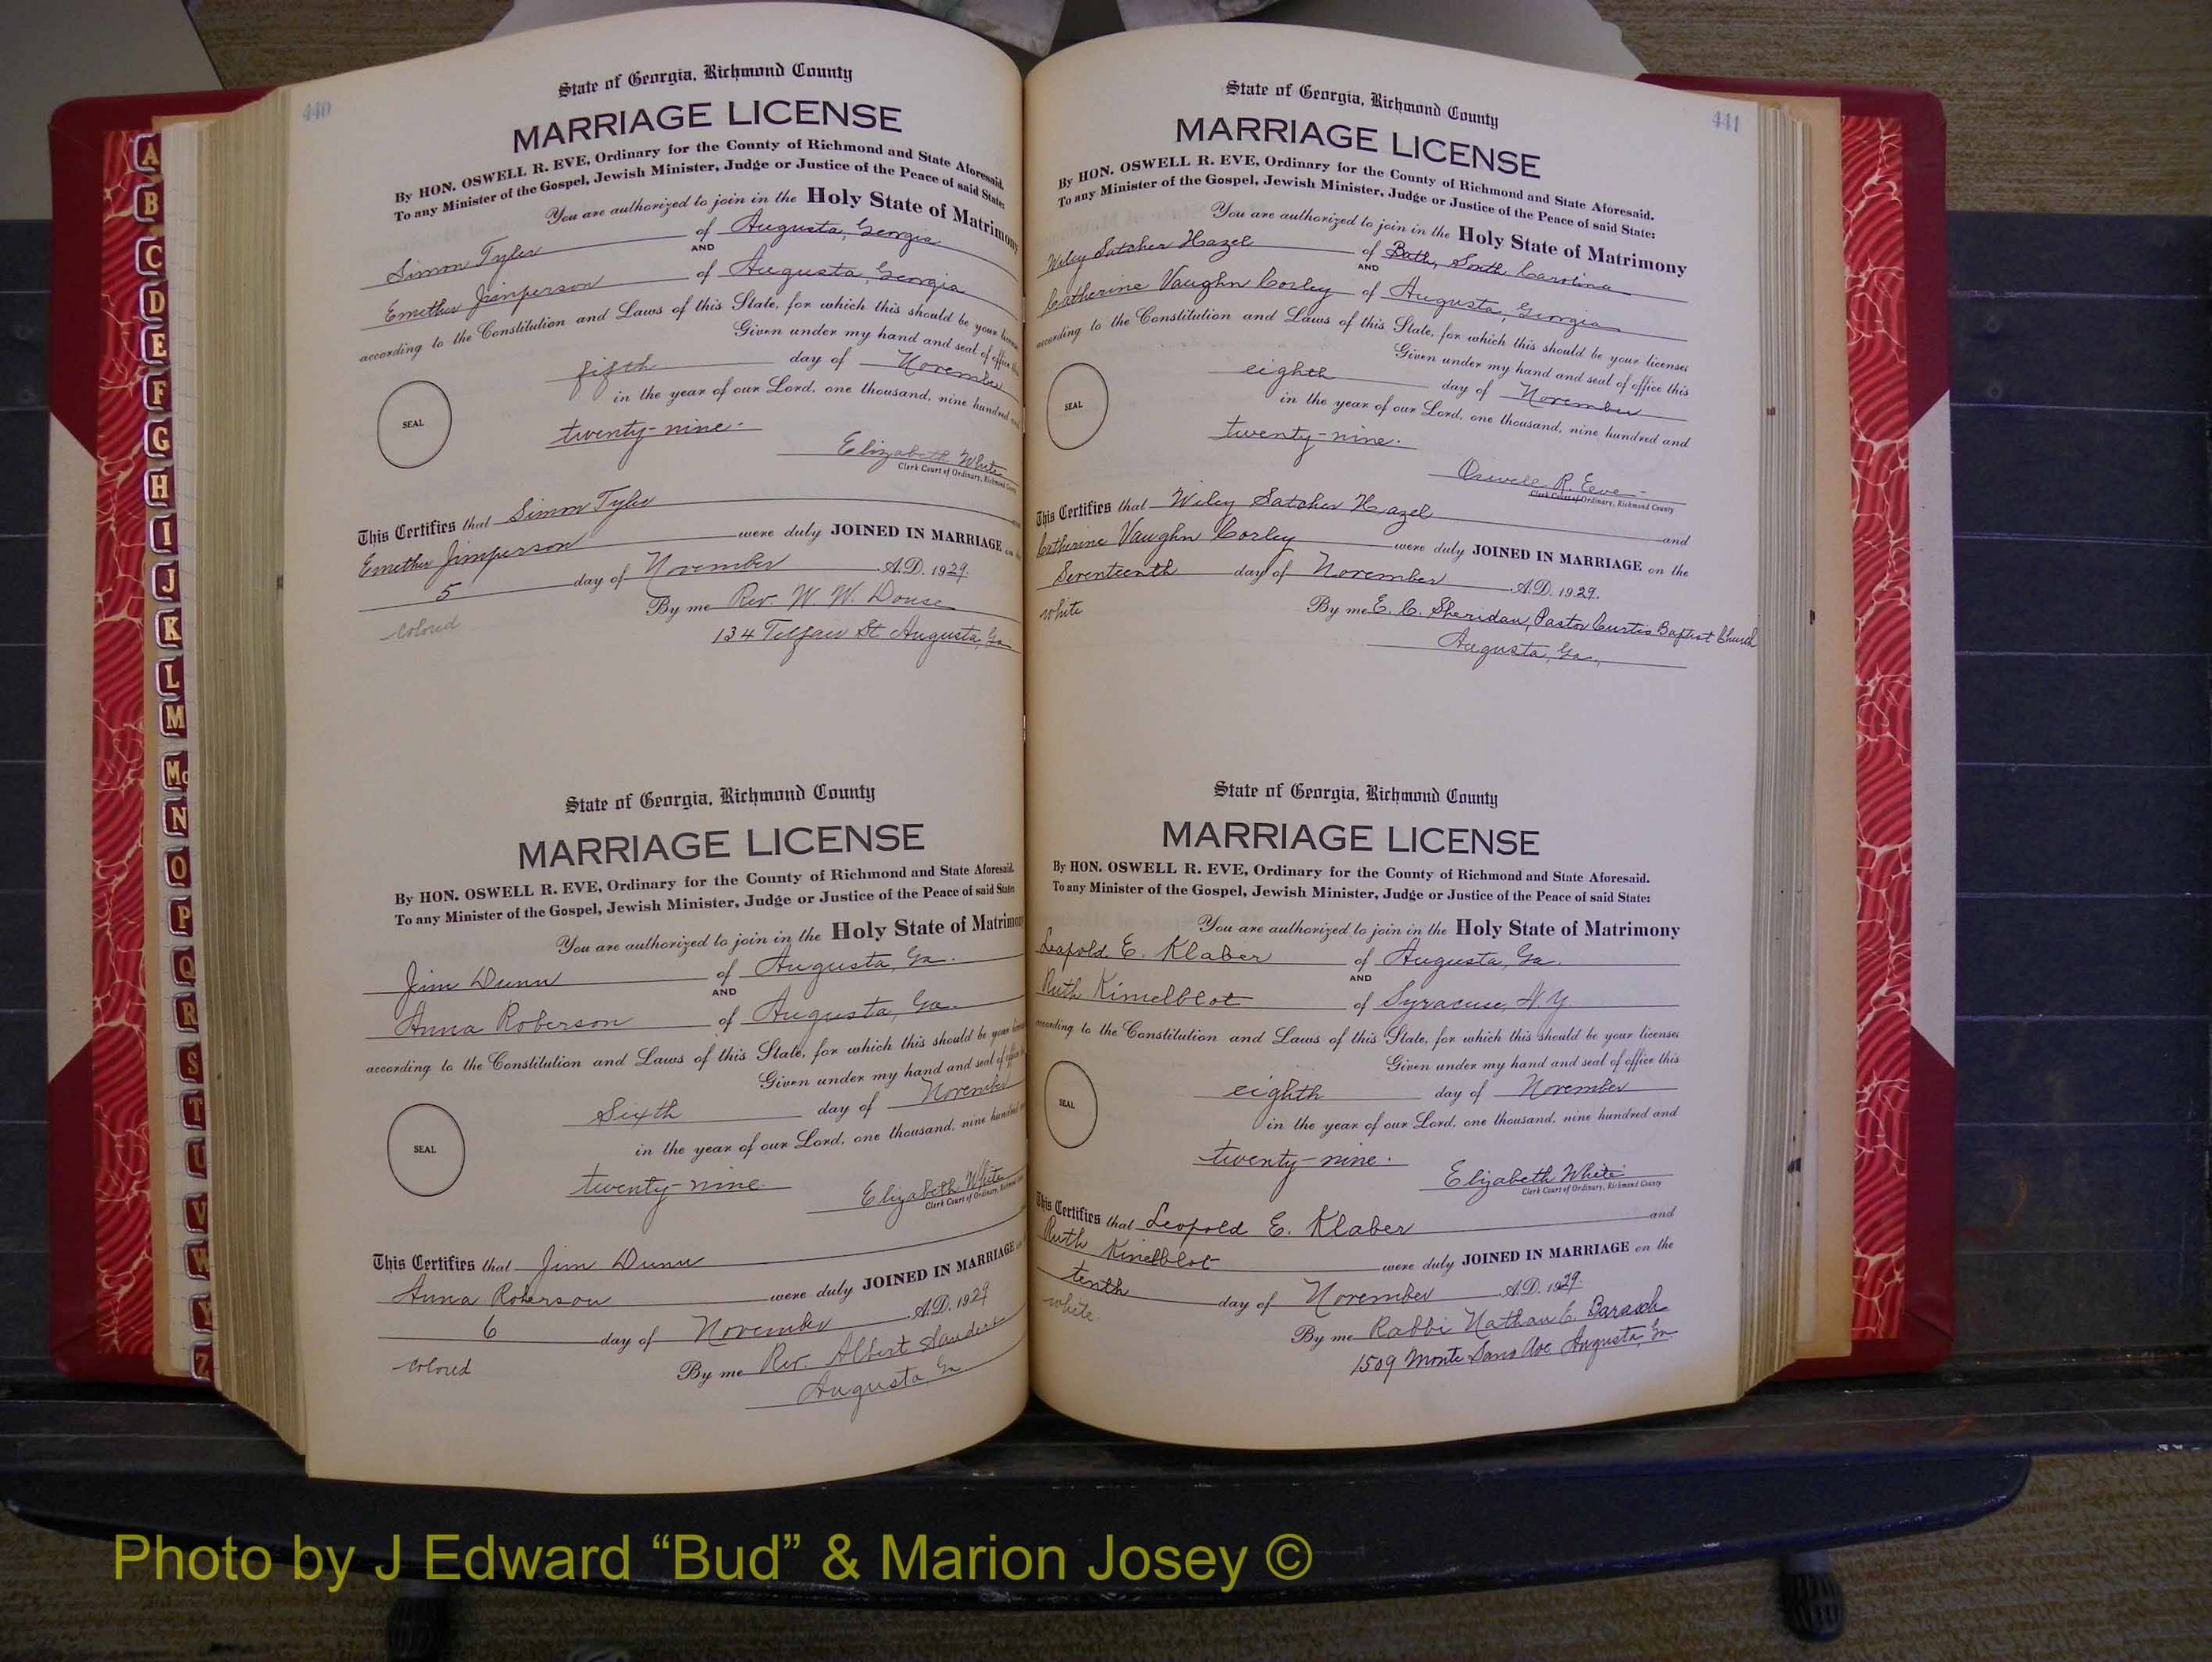 440
State of Georgia, Richmond County
MARRIAGE LICENSE
By HON. OSWELL R. EVE, Ordinary for the County of Richmond and State Aforesaid.
To any Minister of the Gospel, Jewish Minister, Judge or Justice of the Peace of said State:
You are authorized to join in the Holy State of Matrimony
Simon Tyler of Augusta, Georgia
AND
Emether Jimperson of Augusta, Georgia
according to the Constitution and Laws of this State, for which this should be your license
Given under my hand and seal of office
fifth day of November
in the year of our Lord, one thousand, nine hundred
SEAL
twenty-nine.
Elizabeth White
Clerk Court of Ordinary, Richmond County
This Certifies that Simon Tyler
Emether Jimperson were duly JOINED IN MARRIAGE on
5 day of November A.D. 1929.
By me Rev. W. W. Douse
colored
134 Telfair St Augusta, Ga.
State of Georgia, Richmond County
MARRIAGE LICENSE
By HON. OSWELL R. EVE, Ordinary for the County of Richmond and State Aforesaid.
To any Minister of the Gospel, Jewish Minister, Judge or Justice of the Peace of said State
You are authorized to join in the Holy State of Matrimony
Jim Dunn of Augusta, Ga.
AND
Anna Roberson of Augusta, Ga.
according to the Constitution and Laws of this State, for which this should be your
Given under my hand and seal of office
Sixth day of November
in the year of our Lord, one thousand, nine hundred
SEAL
twenty-nine
Elizabeth White
Clerk Court of Ordinary,
This Certifies that Jim Dunn
Anna Roberson were duly JOINED IN MARRIAGE
6 day of November A.D. 1929
colored
By me Rev. Albert Sanders
Augusta, Ga.
441
State of Georgia, Richmond County
MARRIAGE LICENSE
By HON. OSWELL R. EVE, Ordinary for the County of Richmond and State Aforesaid.
To any Minister of the Gospel, Jewish Minister, Judge or Justice of the Peace of said State:
You are authorized to join in the Holy State of Matrimony
Wiley Satcher Hazel of Bath, South Carolina
AND
Catherine Vaughn Corley of Augusta, Georgia
according to the Constitution and Laws of this State, for which this should be your license;
Given under my hand and seal of office this
eighth day of November
in the year of our Lord, one thousand, nine hundred and
SEAL
twenty-nine.
Oswell R. Eve
Clerk Court of Ordinary, Richmond County
This Certifies that Wiley Satcher Hazel and
Catherine Vaughn Corley were duly JOINED IN MARRIAGE on the
Seventeenth day of November A.D. 1929.
white
By me E. C. Sheridan, Pastor Curtis Baptist Church
Augusta, Ga.,
State of Georgia, Richmond County
MARRIAGE LICENSE
By HON. OSWELL R. EVE, Ordinary for the County of Richmond and State Aforesaid.
To any Minister of the Gospel, Jewish Minister, Judge or Justice of the Peace of said State:
You are authorized to join in the Holy State of Matrimony
Leopold E. Klaber of Augusta, Ga.
AND
Ruth Kimelblot of Syracuse, N.Y.
according to the Constitution and Laws of this State, for which this should be your license;
Given under my hand and seal of office this
eighth day of November
in the year of our Lord, one thousand, nine hundred and
SEAL
twenty-nine.
Elizabeth White
Clerk Court of Ordinary, Richmond County
This Certifies that Leopold E. Klaber and
Ruth Kinelblot were duly JOINED IN MARRIAGE on the
tenth day of November A.D. 1929.
white
By me Rabbi Nathan E. Barasch
1509 Monte Sano Ave Augusta, Ga.
A
B
C
D
E
F
G
H
I
J
K
L
M
Mc
N
O
P
Q
R
S
T
U
V
W
Y
Z
Photo by J Edward “Bud” & Marion Josey ©